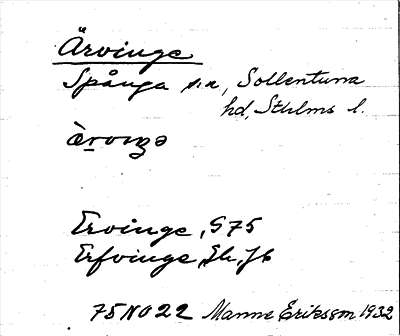 Ärvinge
Spånga sn, Sollentuna
hd, Sthlms l.
Ervinge, G75
Erfvinge, Jb
75NO22 Manne Eriksson 1932